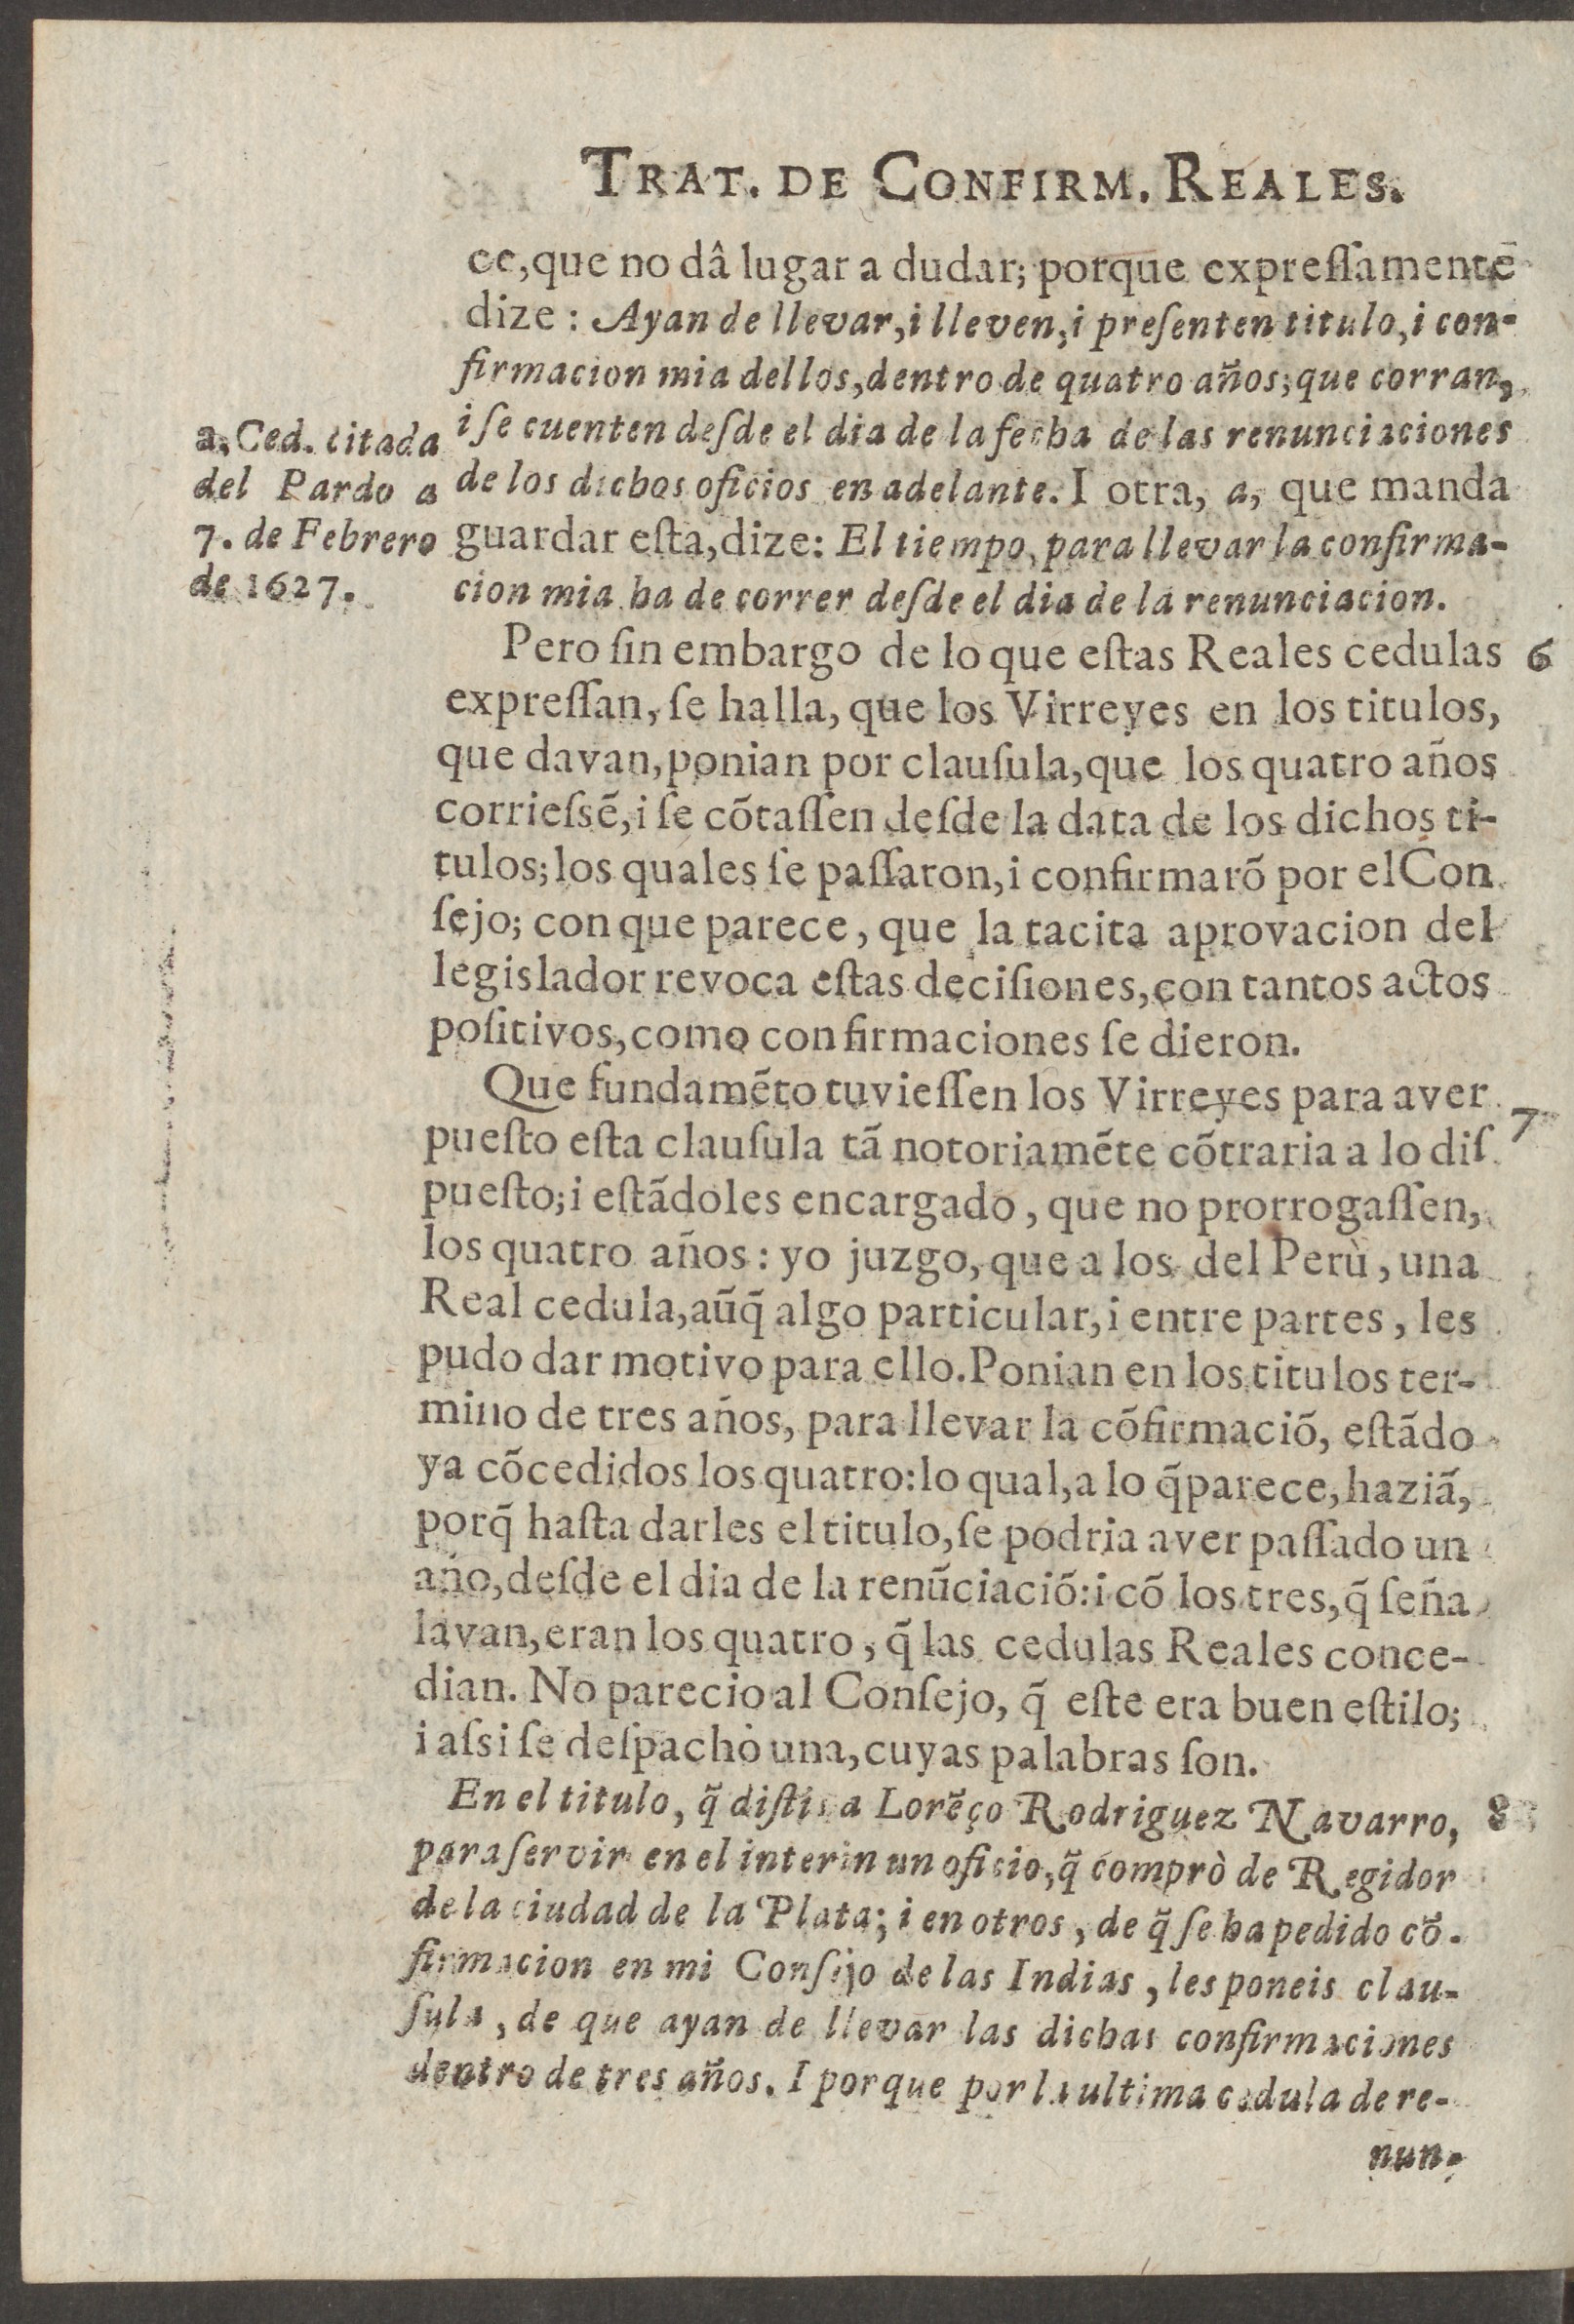 TRAT. DE CONFIRM. REALES.
ce, que no dâ lugar a dudar; porque expreſſamente
dize: Ayan de llevar, i lleven, i preſenten titulo, i con-
firmacion mia dellos, dentro de quatro años; que corran,
i ſe cuenten deſde el dia de la fecha de las renunciaciones
de los dichos oficios en adelante. I otra, a, que manda
guardar eſta, dize: El tiempo, para llevar la confirma-
cion mia ha de correr deſde el dia de la renunciacion.
a, Ced. citada
del Pardo a
7. de Febrero
de 1627.
Pero ſin embargo de lo que eſtas Reales cedulas 6
expreſſan, ſe halla, que los Virreyes en los titulos,
que davan, ponian por clauſula, que los quatro años
corrieſsẽ, i ſe cõtaſſen deſde la data de los dichos ti-
tulos; los quales ſe paſſaron, i confirmarõ por el Con
ſejo; con que parece, que la tacita aprovacion del
legislador revoca eſtas deciſiones, con tantos actos
poſitivos, como confirmaciones ſe dieron.
Que fundamẽto tuvieſſen los Virreyes para aver 7
pueſto eſta clauſula tã notoriamẽte cõtraria a lo diſ
pueſto; i eſtãdoles encargado, que no prorrogaſſen,
los quatro años: yo juzgo, que a los del Perù, una
Real cedula, aũq̃ algo particular, i entre partes, les
pudo dar motivo para ello. Ponian en los titulos ter-
mino de tres años, para llevar la cõfirmaciõ, eſtãdo
ya cõcedidos los quatro: lo qual, a lo q̃ parece, haziã,
porq̃ haſta darles el titulo, ſe podria aver paſſado un
año, deſde el dia de la renũciaciõ: i cõ los tres, q̃ ſeña
lavan, eran los quatro, q̃ las cedulas Reales conce-
dian. No parecio al Conſejo, q̃ eſte era buen eſtilo;
i aſsi ſe deſpachò una, cuyas palabras ſon.
En el titulo, q̃ diſtis a Lorẽço Rodriguez Navarro, 8
para ſervir en el interin un oficio, q̃ comprò de Regidor
de la ciudad de la Plata; i en otros, de q̃ ſe ha pedido cõ-
firmacion en mi Conſejo de las Indias, les poneis clau-
ſula, de que ayan de llevar las dichas confirmaciones
dentro de tres años. I porque por la ultima cedula de re-
nun-